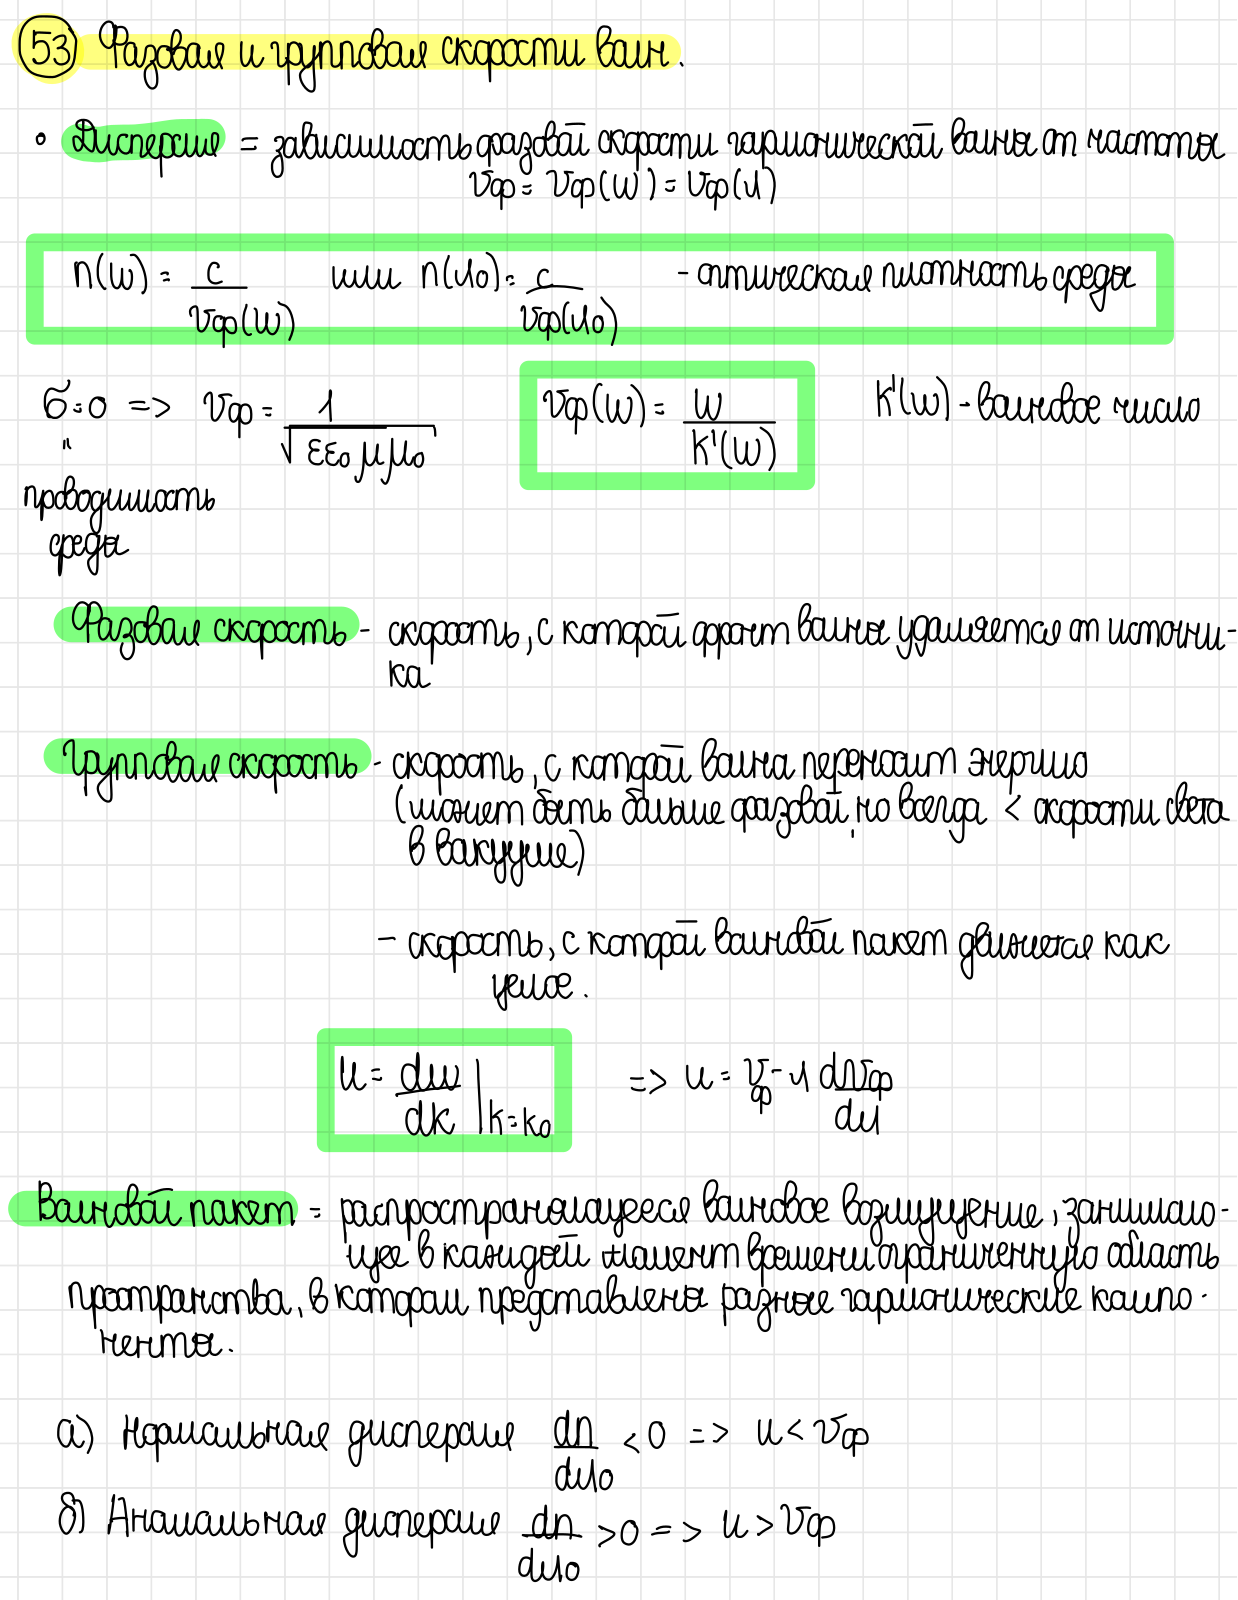 53 Фазовая и групповая скорости волн.
• Дисперсия = зависимость фазовой скорости гармонической волны от частоты
Vф = Vф(ω) = Vф(λ)
n(ω) = c / Vф(ω) или n(λ₀) = c / Vф(λ₀) - оптическая плотность среды
σ = 0 => Vф = 1 / √(εε₀μμ₀) Vф(ω) = ω / k'(ω) k'(ω) - волновое число
"
проводимость
среды
Фазовая скорость - скорость, с которой фронт волны удаляется от источни-
ка
Групповая скорость - скорость, с которой волна переносит энергию
(может быть больше фазовой, но всегда < скорости света
в вакууме)
- скорость, с которой волновой пакет движется как
целое.
u = dω / dk |k=k₀ => u = Vф - λ dVф / dλ
Волновой пакет = распространяющееся волновое возмущение, занимаю-
щее в каждый момент времени ограниченную область
пространства, в котором представлены разные гармонические компо-
ненты.
а) Нормальная дисперсия dn / dλ₀ < 0 => u < Vф
б) Аномальная дисперсия dn / dλ₀ > 0 => u > Vф